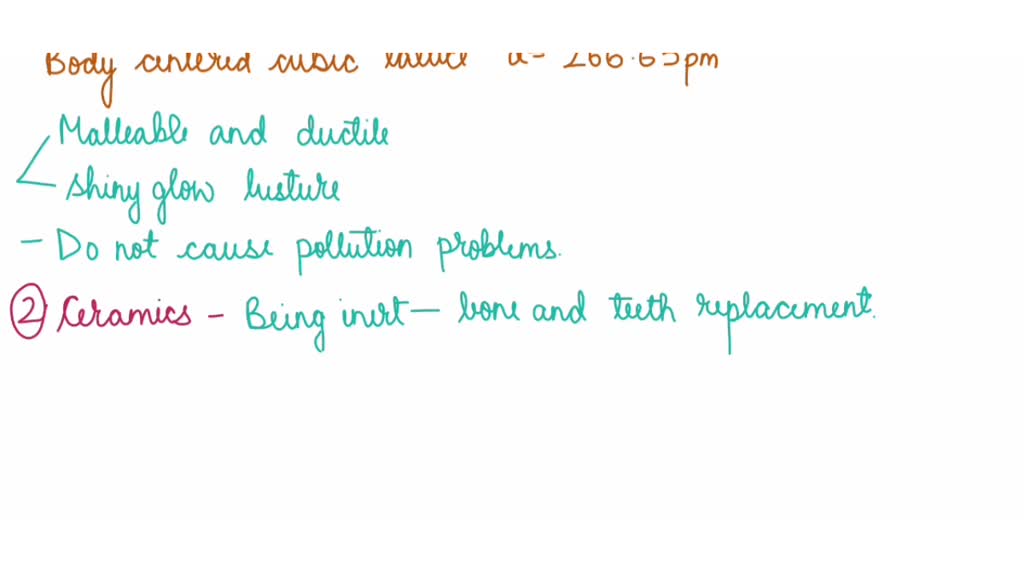 Body centered cubic lattice a= 286.65pm
Malleable and ductile
shiny glow lusture
- Do not cause pollution problems.
② Ceramics - Being inert - bone and teeth replacement.